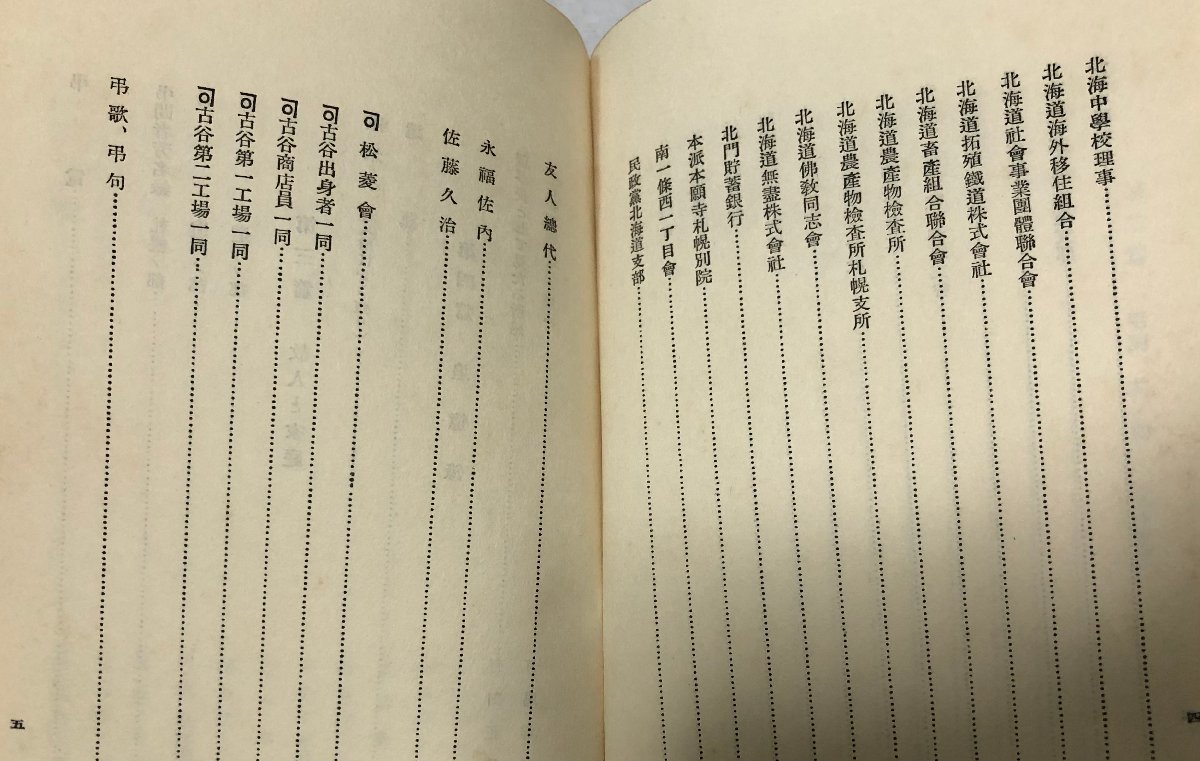 北海中學校理事
北海道海外移住組合
北海道社會事業團體聯合會
北海道拓殖鐵道株式會社
北海道畜產組合聯合會
北海道農產物檢查所
北海道農產物檢查所札幌支所
北海道佛敎同志會
北海道無盡株式會社
北門貯蓄銀行
本派本願寺札幌別院
南一條西一丁目會
民政黨北海道支部
四
友人總代
永福佐內
佐藤久治
松菱會
古谷出身者一同
古谷商店員一同
古谷第一工場一同
古谷第二工場一同
弔歌、弔句
五